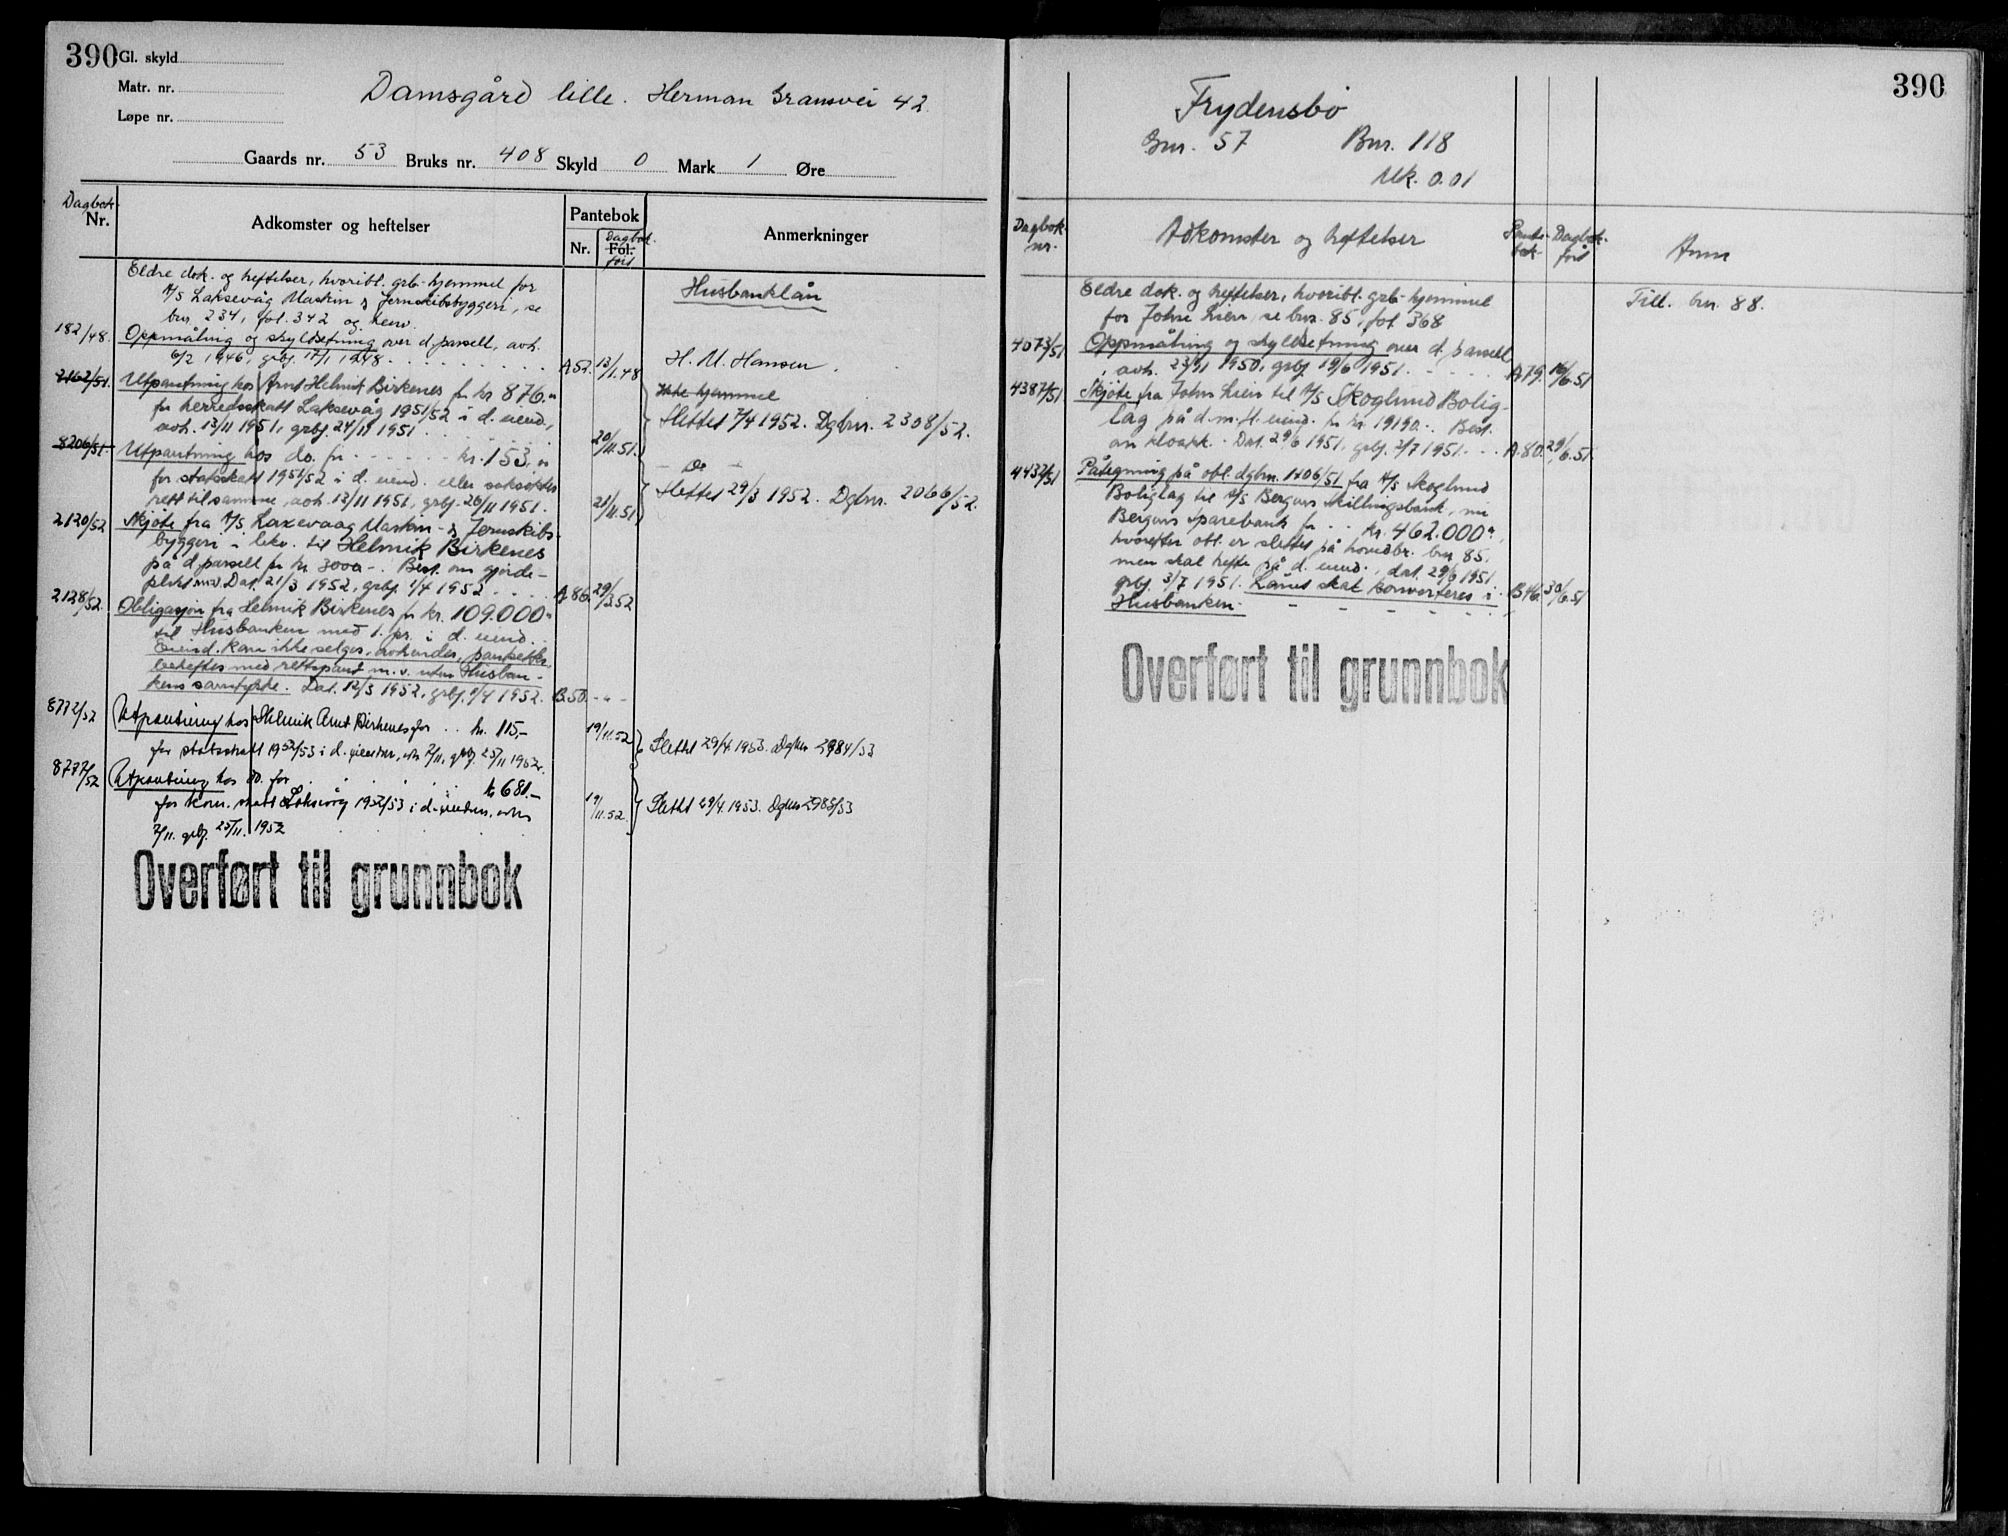 390 Gl. skyld
Matr. nr.
Løpe nr.
Damsgård lille. Herman Gransvei 42.
Gaards nr. 53 Bruks nr. 408 Skyld 0 Mark 1 Øre
Dagbok-
Nr.
Adkomster og heftelser
Pantebok
Nr. Dagbok. Fol. ført
Anmerkninger
Eldre dok. og heftelser, hvoribl. grb. hjemmel for
A/S Laksevåg Maskin & Jernskibsbyggeri, se
bnr. 234, fol. 342 og henv.
Husbanklån
182/48. Oppmåling og skyldsetning over d. parsell, avh.
6/2 1946, grbj. 17/1 1948 A52. 13/1.48 H. M. Hansen
2162/51. Utpantning hos Arnt Helmit Birkenes for kr 876.-
for herredsskatt Laksevåg 1951/52 i d. eiend.,
avh. 13/11 1951, grbj. 24/11 1951 20/11.51.
Ikke hjemmel
Slettet 7/4 1952. Dgbnr. 2308/52.
8206/51. Utpantning hos do. for kr. 153,-
for statsskatt 1951/52 i d. eiend. eller saksøktes
rett til samme, avh. 13/11 1951, grbj. 26/11 1951. 21/11.51
— Do —
Slettet 29/3 1952. Dgbnr. 2066/52.
2120/52 Skjøte fra A/S Laxevaag Maskin- & Jernskibs-
byggeri i likv. til Helmik Birkenes
på d. parsell for kr. 3000.-. Best. om gjerde-
plikt m.v. Dat. 21/3 1952, grbj. 1/4 1952 A86. 29/3.52
2128/52. Obligasjon fra Helmik Birkenes for kr. 109.000.-
til Husbanken med 1. pr. i d. eiend.
Eiend. kan ikke selges, avhendes, pantsettes,
beheftes med rettspant m.v. uten Husban-
kens samtykke. Dat. 12/3 1952, grbj. 1/4 1952. B.50. - " -
8772/52 Utpantning hos Helmik Arnt Birkenes for kr. 115,-
for statsskatt 1952/53 i d. eiendom, avh. 7/11, grbj. 25/11 1952. 19/11.52
Slettet 29/4. 1953. Dgbnr 2984/53
8777/52 Utpantning hos do. for kr 681.-
for kom. skatt Laksevåg 1952/53 i d. eiendom, avh.
7/11. grbj. 25/11. 1952 19/11.52.
Slettet 29/4. 1953. Dgbnr 2985/53
Overført til grunnbok
390
Frydensbø
Gnr. 57 Bnr. 118
Mk. 0.01
Dagbok-
nr.
Adkomster og heftelser
Pante-
bok
Dagbok.
ført
Anm
Eldre dok. og heftelser, hvoribl. grb. hjemmel
for John Lien, se bnr. 85, fol 368
Till. bnr. 88.
4073/51 Oppmåling og skyldsetning over d. parsell
avh. 23/11 1950, grbj. 19/6 1951. A.79. 16/6.51
4387/51 Skjøte fra John Lien til A/S Skoglund Bolig-
lag på d. m. fl. eiend. for kr. 19190.-. Best.
om kloakk. Dat. 29/6 1951, grbj. 2/7 1951. A.80. 29/6.51.
4432/51 Påtegning på obl. dgbnr. 1406/51 fra A/S Skoglund
Boliglag til A/S Bergens Skillingsbank, nu
Bergens Sparebank for kr. 462.000.-,
hvorefter obl. er slettet på hovedbr. bnr 85,
men skal hefte på d. eiend., dat. 29/6 1951
grbj. 3/7 1951. Lånet skal konverteres i B46. 30/6.51
Husbanken.
Overført til grunnbok